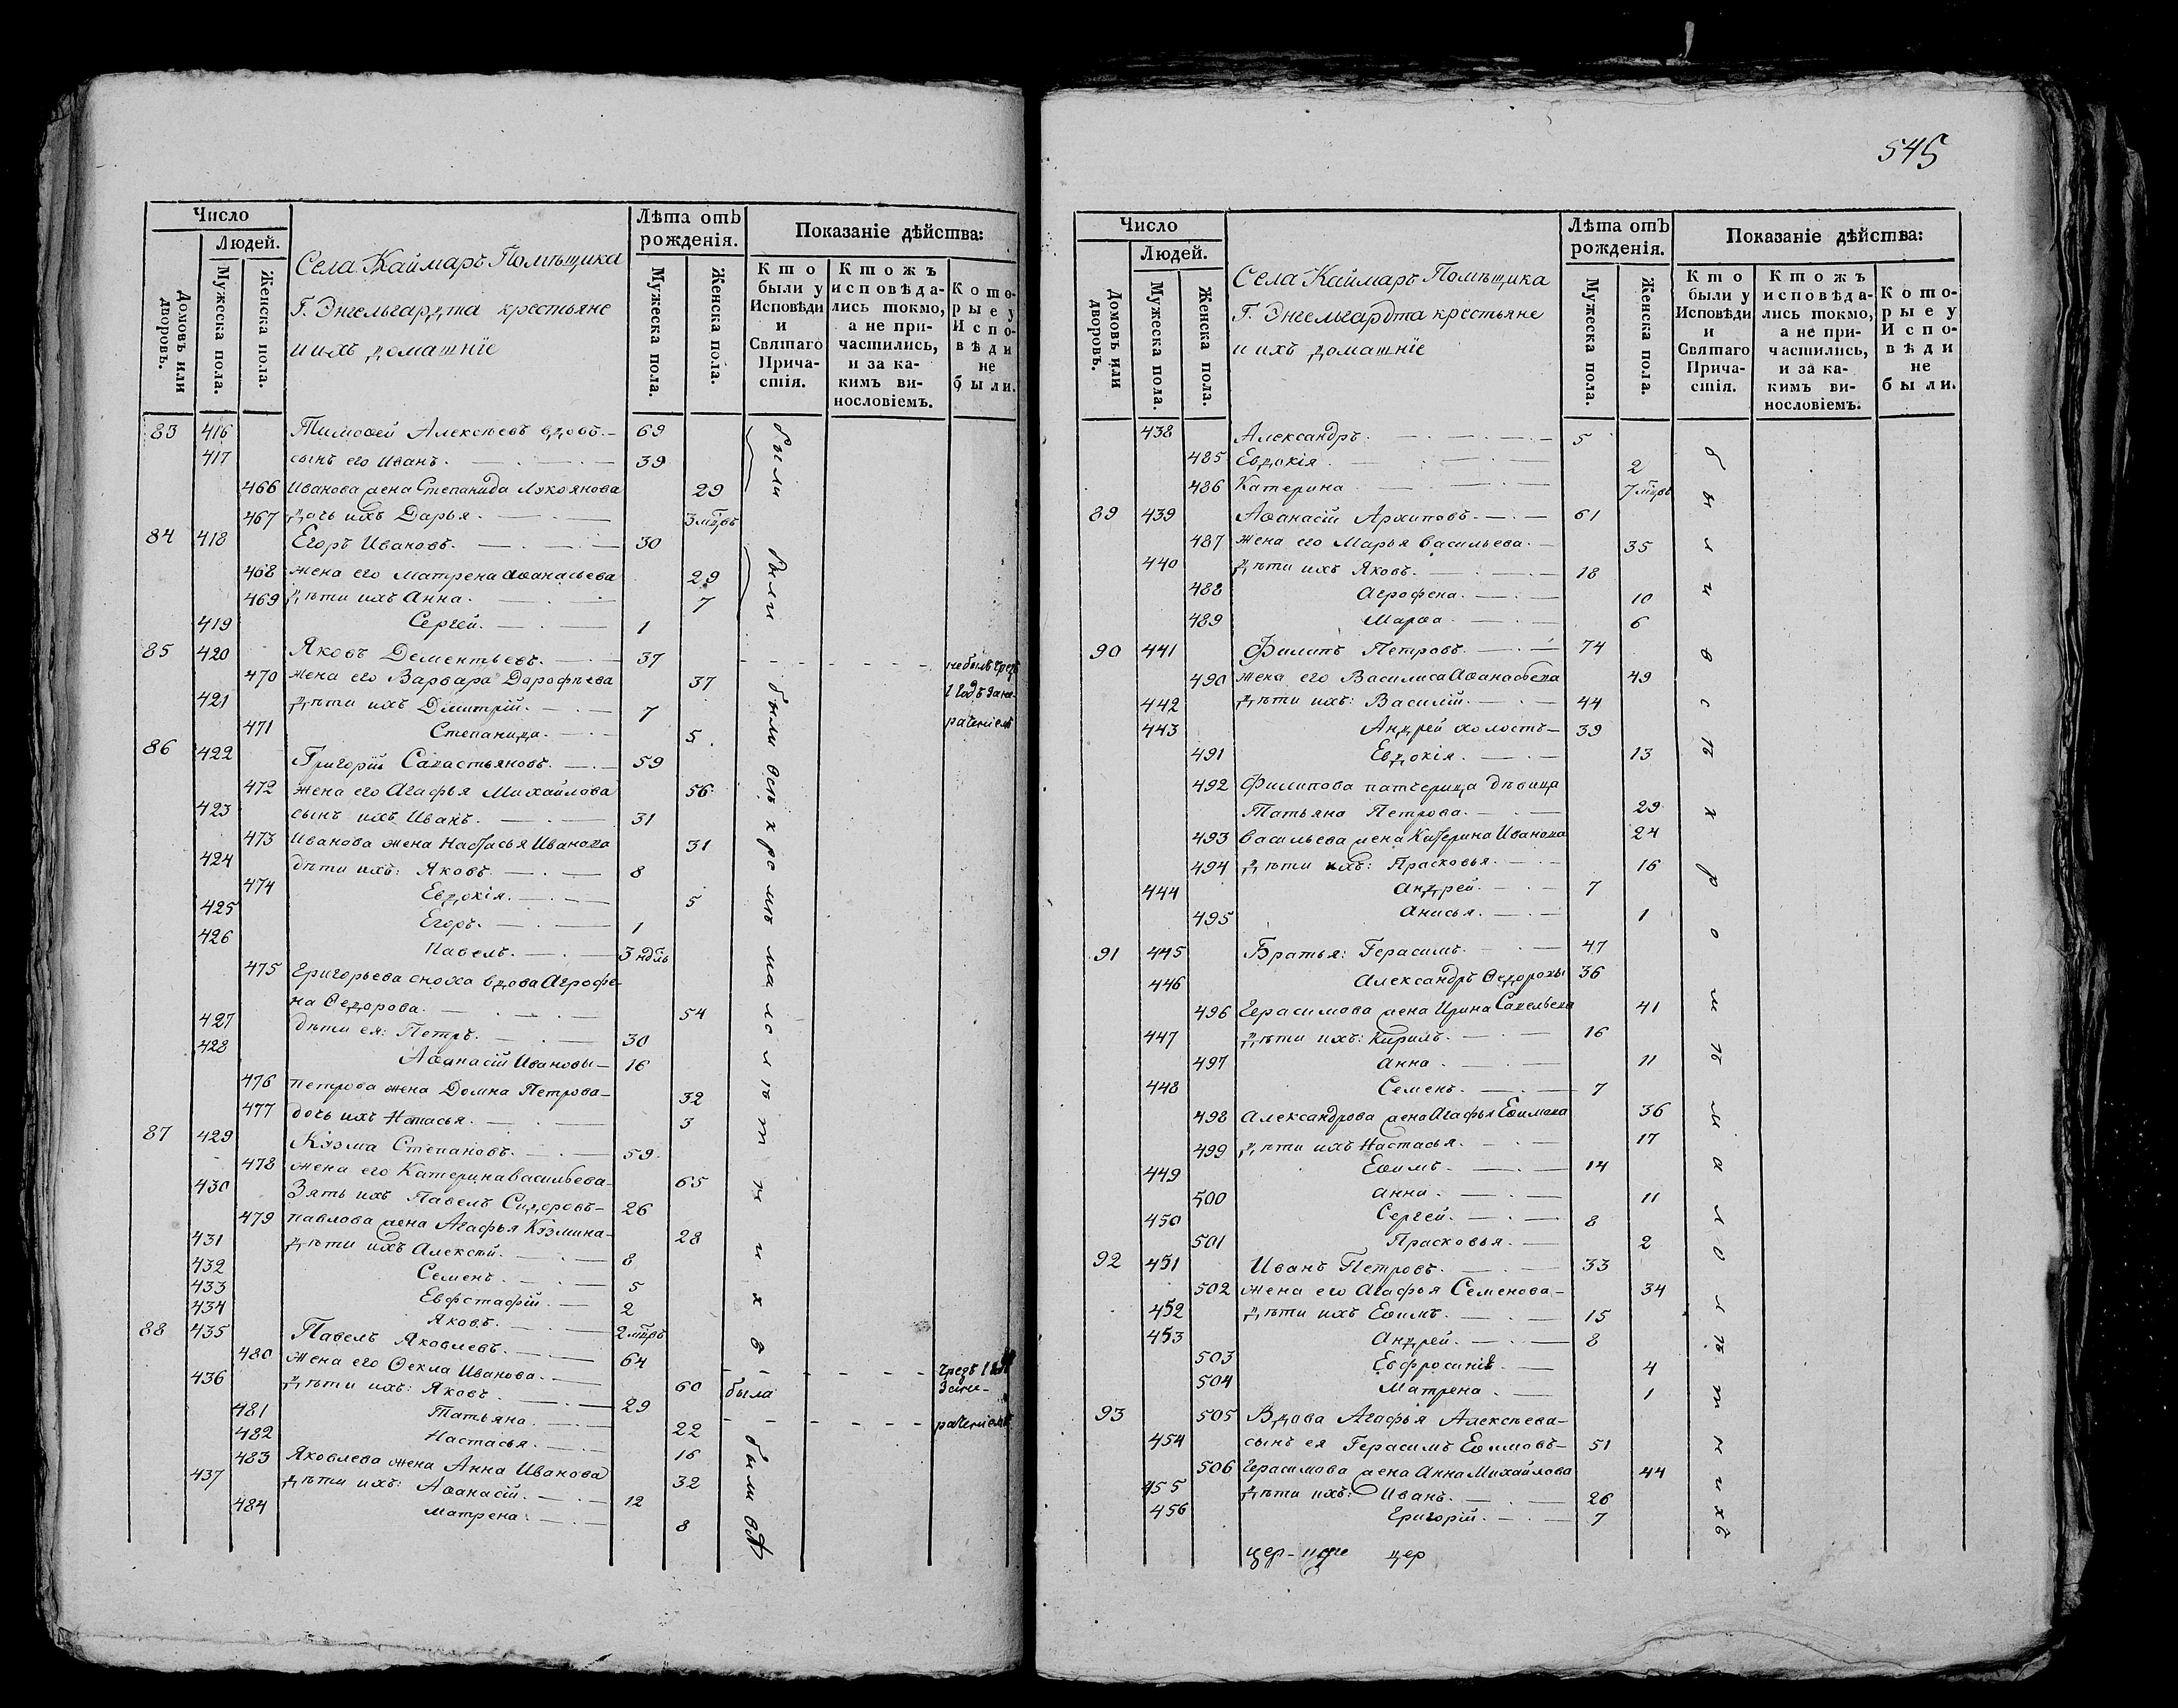 Число
Людей.
Домовъ или дворовъ.
Мужеска пола.
Женска пола.
Села Каймаръ Помѣщика
Г. Энгельгардта крестьяне
и ихъ домашніе
Лѣта отъ рожденія.
Мужеска пола.
Женска пола.
Показаніе дѣйства:
Кто были у Исповѣди и Святаго Причастія.
Ктожъ исповѣдались токмо, а не причастились, и за какимъ винословіемъ.
Которые у Исповѣди не были.
83 416 Тимофей Алексѣевъ вдовъ. 69 были
417 сынъ его Иванъ. 39
466 Иванова жена Степанида Лукоянова 29
467 дочь ихъ Дарья. 3 мцвъ
84 418 Егоръ Ивановъ. 30 были
468 жена его Матрена Аѳанасьева 29
469 дѣти ихъ Анна. 7
419 Сергей. 1
85 420 Яковъ Дементьевъ. 37 не былъ чрезъ
470 жена его Варвара Дарофѣева 37 1 годъ за не-
421 дѣти ихъ Дмитрій. 7 раченіемъ
471 Степанида. 5
были всѣ кромѣ малолѣтнихъ
86 422 Григорій Савастьяновъ. 59
472 жена его Агафья Михайлова 56
423 сынъ ихъ Иванъ. 31
473 Иванова жена Настасья Иванова 31
424 дѣти ихъ: Яковъ. 8
474 Евдокія. 5
425 Егоръ. 1
426 Павелъ. 3 ндѣль
475 Григорьева сноха вдова Агрофе-
на Ѳедорова. 54
427 дѣти ея: Петръ. 30
428 Аѳанасій Ивановы 16
476 Петрова жена Домна Петрова 32
477 дочь ихъ Настасья. 3
87 429 Кузма Степановъ. 59
478 жена его Катерина Васильева 65
430 Зять ихъ Павелъ Сидоровъ 26
479 Павлова жена Агафья Кузмина 28
431 дѣти ихъ Алексѣй. 8
432 Семенъ. 5
433 Евфстафій. 2
434 Яковъ. 2 мцвъ
88 435 Павелъ Яковлевъ. 64 чрезъ 1
480 жена его Ѳекла Иванова. 60 была за не-
436 дѣти ихъ: Яковъ. 29 раченіемъ
481 Татьяна. 22
482 Настасья. 16
483 Яковлева жена Анна Иванова 32 были
437 дѣти ихъ: Аѳанасій. 12
484 Матрена. 8
545
Число
Людей.
Домовъ или дворовъ.
Мужеска пола.
Женска пола.
Села Каймаръ Помѣщика
Г. Энгельгардта крестьяне
и ихъ домашніе
Лѣта отъ рожденія.
Мужеска пола.
Женска пола.
Показаніе дѣйства:
Кто были у Исповѣди и Святаго Причастія.
Ктожъ исповѣдались токмо, а не причастились, и за какимъ винословіемъ.
Которые у Исповѣди не были.
были всѣ кромѣ малолѣтнихъ
438 Александръ. 5
485 Евдокія. 2
486 Катерина 7 мцвъ
89 439 Аѳанасій Архиповъ. 61
487 жена его Марья Васильева. 35
440 дѣти ихъ Яковъ. 18
488 Агрофена. 10
489 Марѳа. 6
90 441 Филипъ Петровъ. 74
490 жена его Василиса Аѳанасьева 49
442 дѣти ихъ: Василій. 44
443 Андрей холостъ 39
491 Евдокія. 13
492 Филипова патчерица дѣвица
Татьяна Петрова. 29
493 Васильева жена Катерина Иванова 24
494 дѣти ихъ: Прасковья. 16
444 Андрей. 7
495 Анисья. 1
91 445 Братья: Герасимъ. 47
446 Александръ Ѳедоровы 36
496 Герасимова жена Ирина Савельева 41
447 дѣти ихъ: Кирилъ. 16
497 Анна. 11
448 Семенъ. 7
498 Александрова жена Агафья Еѳимова 36
499 дѣти ихъ Настасья. 17
449 Еѳимъ. 14
500 Анна. 11
450 Сергей. 8
501 Прасковья. 2
92 451 Иванъ Петровъ. 33
502 жена его Агафья Семенова 34
452 дѣти ихъ Еѳимъ. 15
453 Андрей. 8
503 Евфросинія. 4
504 Матрена. 1
93 505 Вдова Агафья Алексѣева
454 сынъ ея Герасимъ Еѳимовъ 51
506 Герасимова жена Анна Михайлова 44
455 дѣти ихъ: Иванъ. 26
456 Григорій. 7